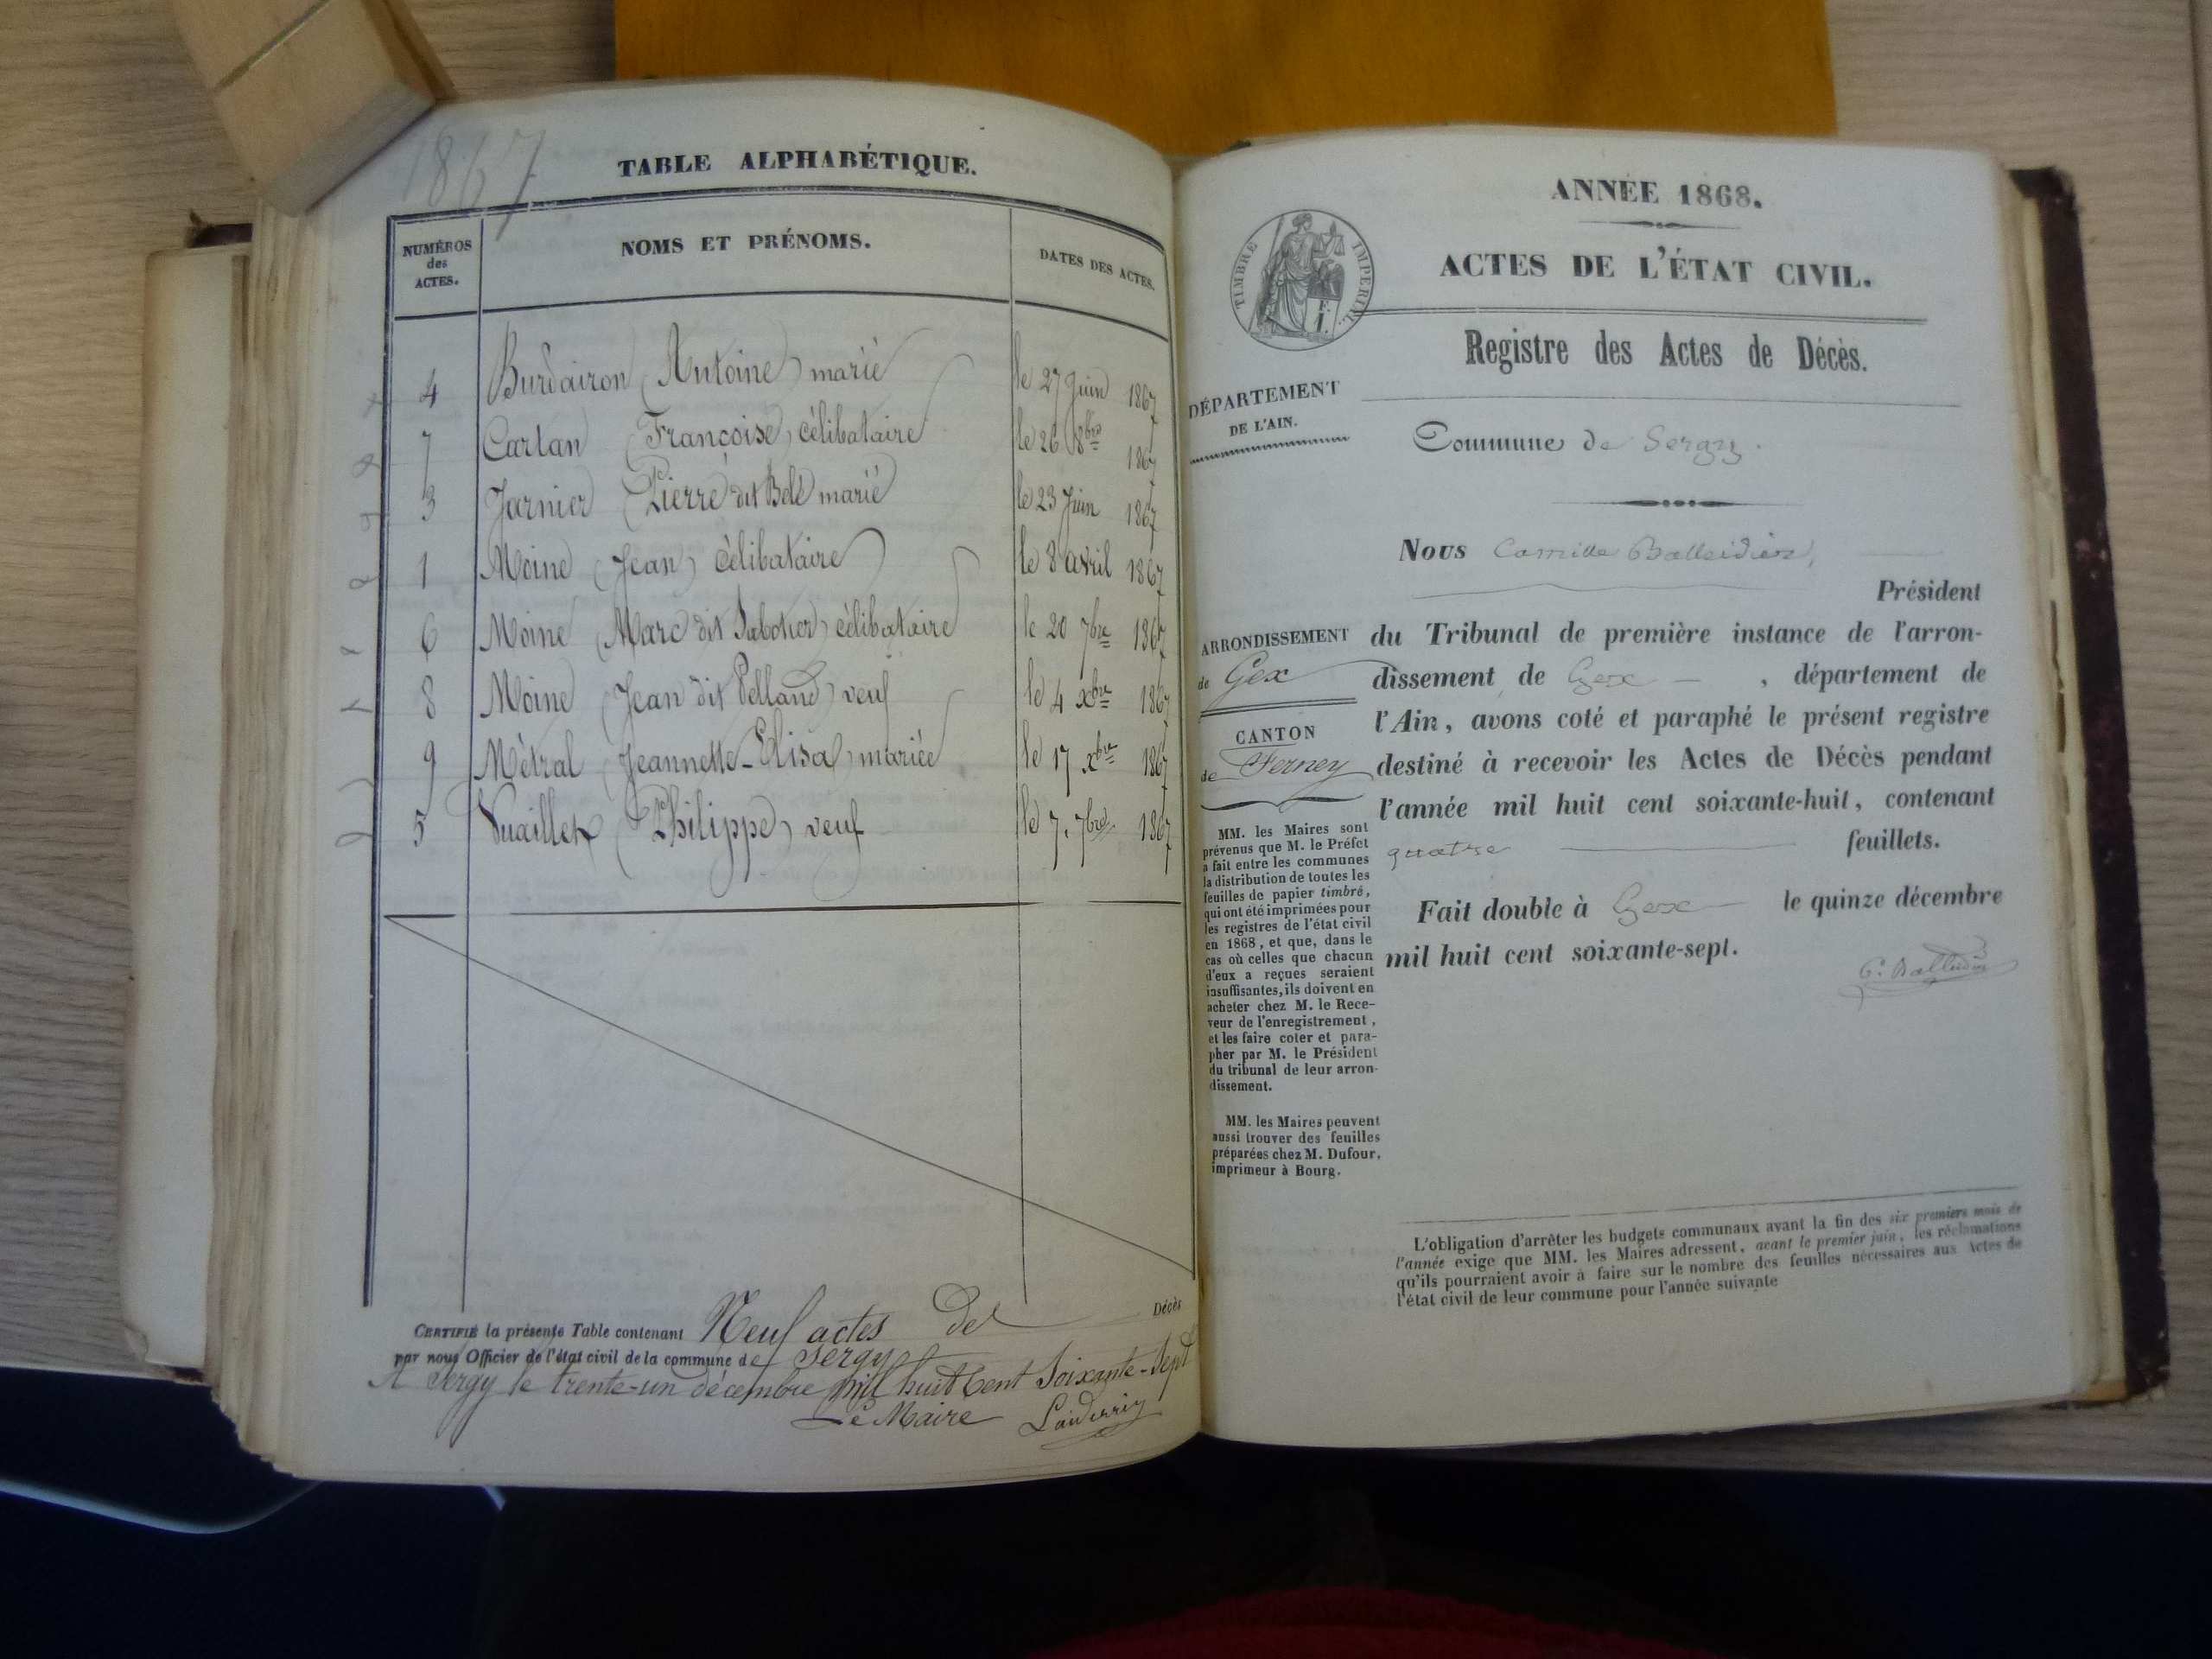 1867
TABLE ALPHABÉTIQUE.
NUMÉROS des ACTES. NOMS ET PRÉNOMS. DATES DES ACTES.
4 Burdairon (Antoine) marié le 27 Juin 1867
7 Cartan (Françoise) célibataire le 26 8bre 1867
3 Jarnier (Pierre dit Bolé) marié le 23 Juin 1867
1 Moine (Jean) célibataire le 8 avril 1867
6 Moine (Marc dit Sabotier) célibataire le 20 7bre 1867
8 Moine (Jean dit Pelland) veuf le 4 xbre 1867
9 Métral (Jeannette-Elisa) mariée le 17 xbre 1867
5 Vuaillet (Philippe) veuf le 7. 7bre 1867
CERTIFIÉ la présente Table contenant Neuf actes de Décès
par nous Officier de l'état civil de la commune de Sergy
A Sergy le trente-un décembre mil huit Cent Soixante-Sept
Le Maire Landerrin
ANNÉE 1868.
TIMBRE IMPÉRIAL.
ACTES DE L'ÉTAT CIVIL.
Registre des Actes de Décès.
DÉPARTEMENT
DE L'AIN.
Commune de Sergy.
Nous Camille Balleidier,
Président
du Tribunal de première instance de l'arron-
dissement de Gex, département de
l'Ain, avons coté et paraphé le présent registre
destiné à recevoir les Actes de Décès pendant
l'année mil huit cent soixante-huit, contenant
quatre feuillets.
Fait double à Gex le quinze décembre
mil huit cent soixante-sept.
C. Balleidier
ARRONDISSEMENT
de Gex
CANTON
de Ferney
MM. les Maires sont
prévenus que M. le Préfet
a fait entre les communes
la distribution de toutes les
feuilles de papier timbré,
qui ont été imprimées pour
les registres de l'état civil
en 1868, et que, dans le
cas où celles que chacun
d'eux a reçues seraient
insuffisantes, ils doivent en
acheter chez M. le Rece-
veur de l'enregistrement,
et les faire coter et para-
pher par M. le Président
du tribunal de leur arron-
dissement.
MM. les Maires peuvent
aussi trouver des feuilles
préparées chez M. Dufour,
imprimeur à Bourg.
L'obligation d'arrêter les budgets communaux avant la fin des six premiers mois de
l'année exige que MM. les Maires adressent, avant le premier juin, les réclamations
qu'ils pourraient avoir à faire sur le nombre des feuilles nécessaires aux Actes de
l'état civil de leur commune pour l'année suivante